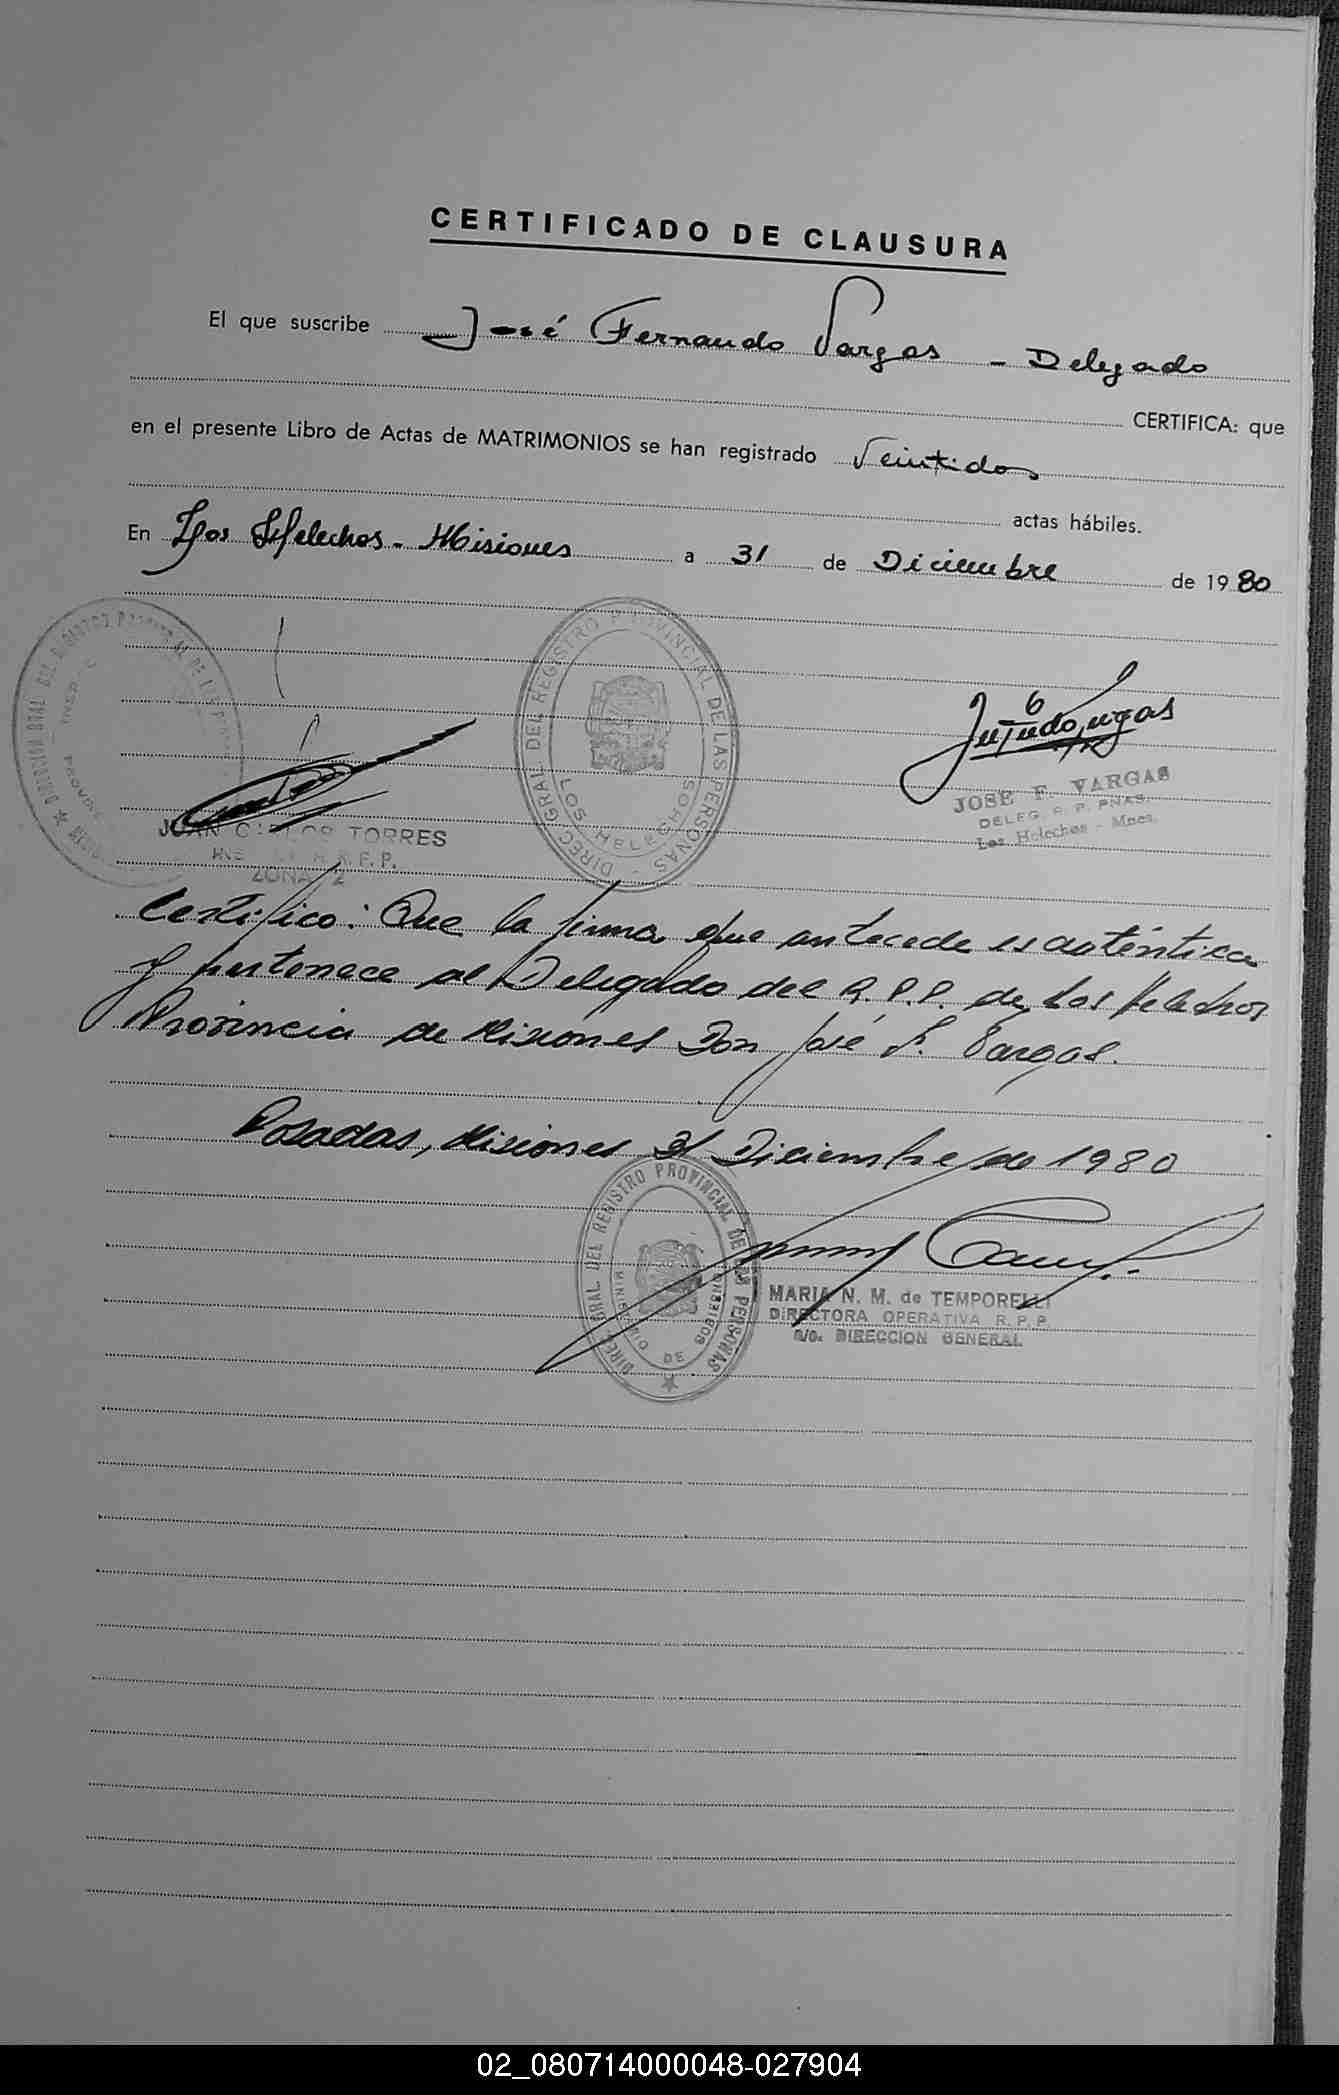 CERTIFICADO DE CLAUSURA
El que suscribe José Fernando Vargas - Delegado
CERTIFICA: que
en el presente Libro de Actas de MATRIMONIOS se han registrado Veintidos
actas hábiles.
En Los Helechos - Misiones a 31 de Diciembre de 1980
DIREC. GRAL. DEL REGISTRO PROVINCIAL DE LAS PERSONAS
LOS HELECHOS
JOSE F. VARGAS
DELEG. R. P. PNAS.
Los Helechos - Mnes.
JUAN CARLOS TORRES
R. P. P.
ZONA 2
Certifico: Que la firma que antecede es auténtica
y pertenece al Delegado del R.P.P. de Los Helechos
Provincia de Misiones Don José F. Vargas.
Posadas, Misiones 31 Diciembre de 1980
DIREC. GRAL. DEL REGISTRO PROVINCIAL DE LAS PERSONAS
MARIA N. M. de TEMPORELLI
DIRECTORA OPERATIVA R. P. P.
a/c. DIRECCION GENERAL
02_080714000048-027904